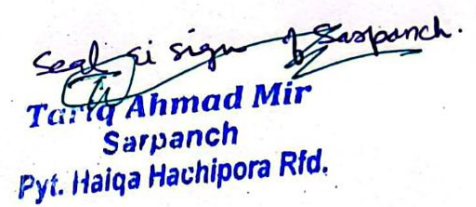 Seal & sign of Sarpanch.
Tariq Ahmad Mir
Sarpanch
Pyt. Haiqa Hachipora Rfd.